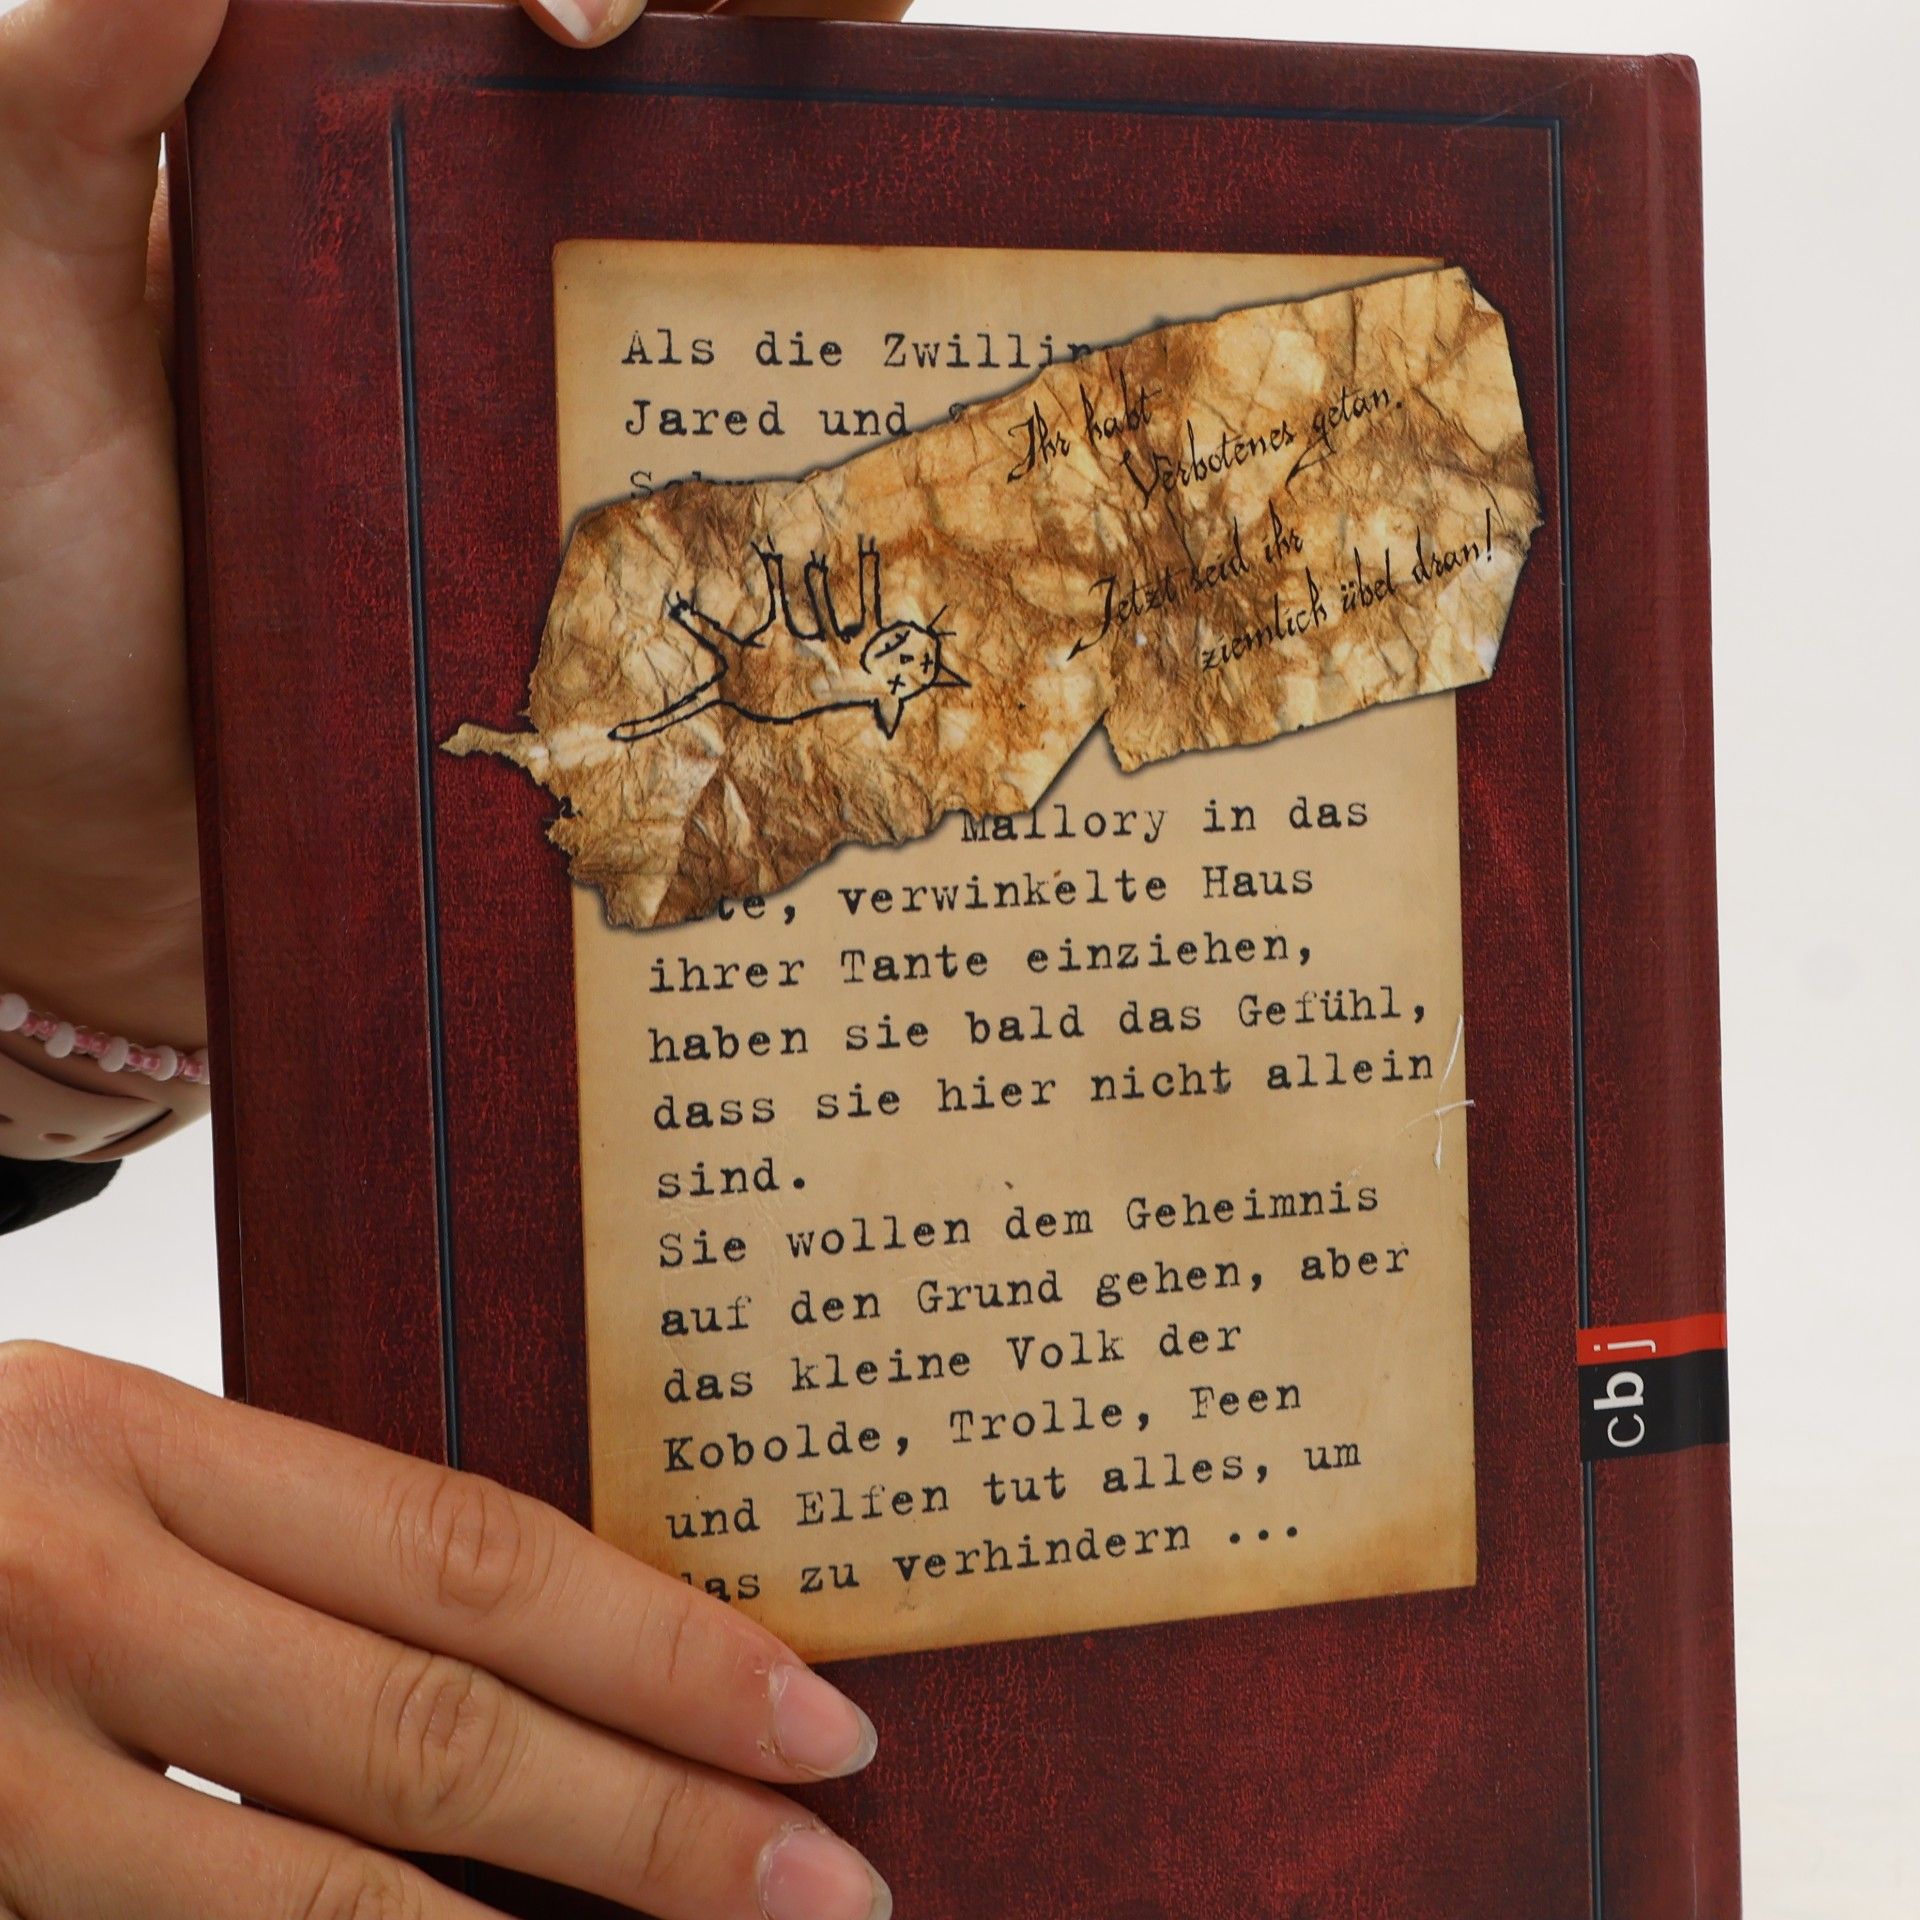 Als die
Jared und
Ihr habt
Verbotenes getan.
Jetzt seid ihr
ziemlich übel dran!
Mallory in das
verwinkelte Haus
ihrer Tante einziehen,
haben sie bald das Gefühl,
dass sie hier nicht allein
sind.
Sie wollen dem Geheimnis
auf den Grund gehen, aber
das kleine Volk der
Kobolde, Trolle, Feen
und Elfen tut alles, um
das zu verhindern ...
cbj